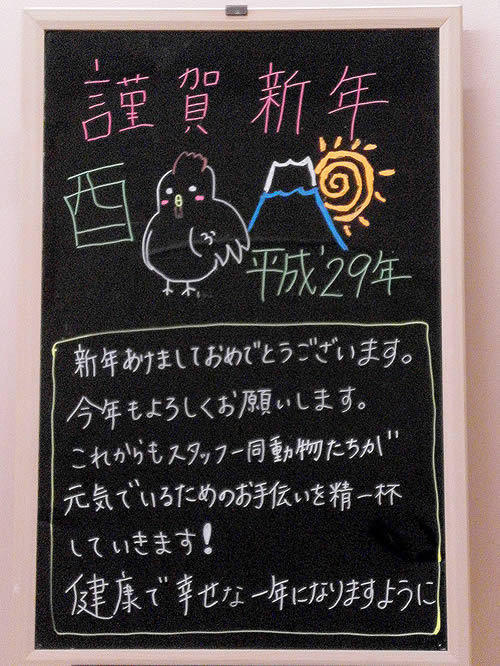 謹賀新年
酉
平成29年
新年あけましておめでとうございます。
今年もよろしくお願いします。
これからもスタッフ一同動物たちが
元気でいるためのお手伝いを精一杯
していきます!
健康で幸せな一年になりますように